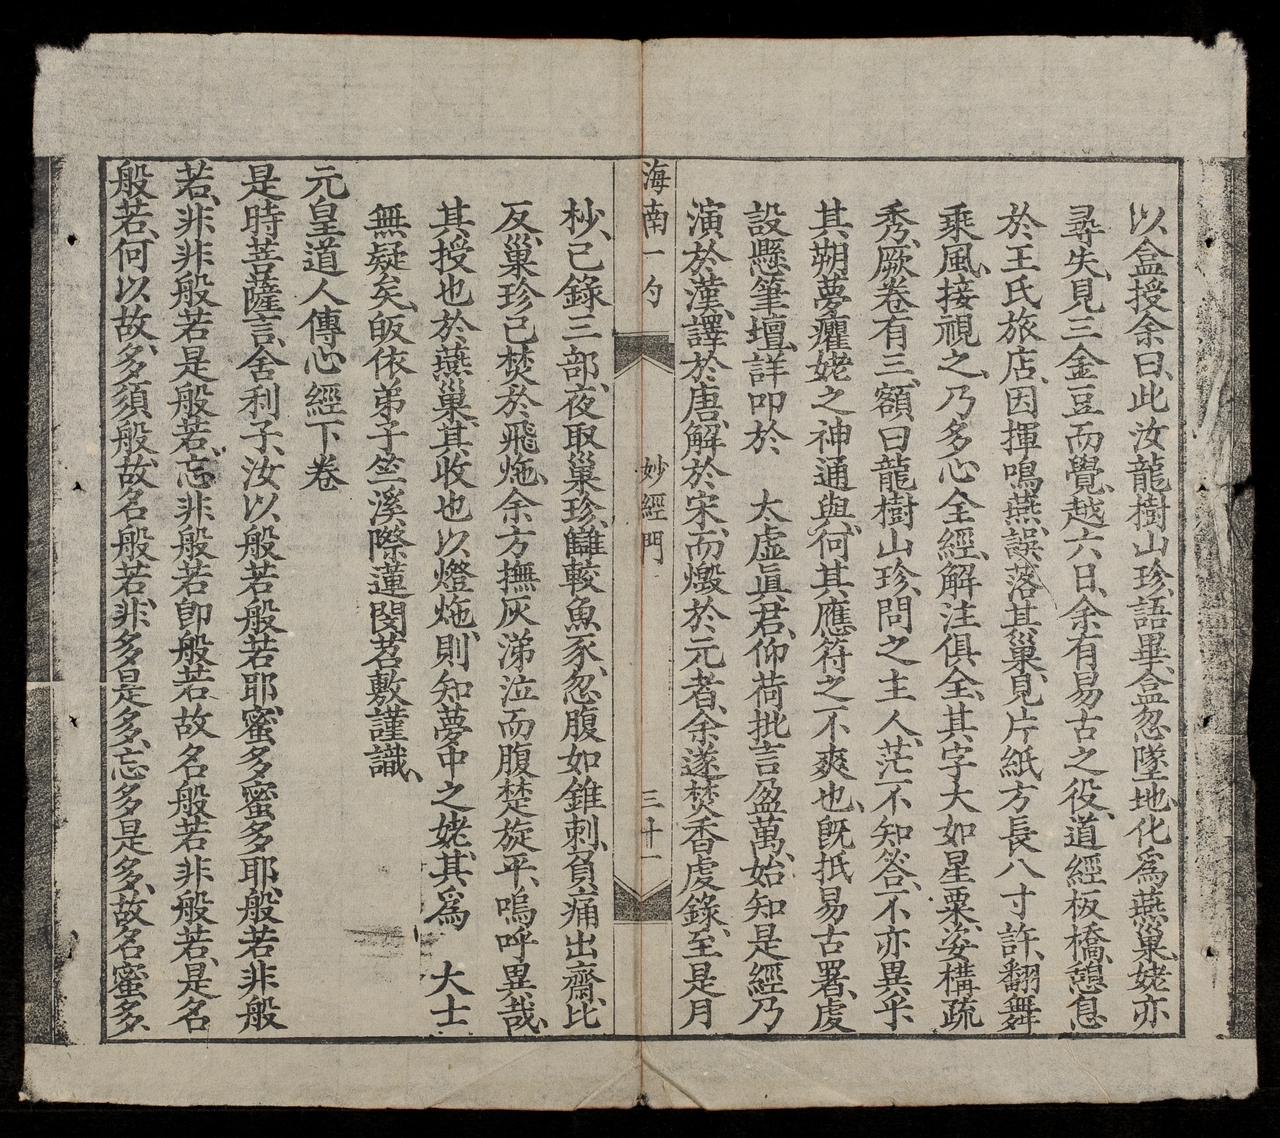 以盒授余曰、此汝龍樹山珍、語畢、盒忽墜地化爲燕巢、姥亦
尋失、見三金豆而覺、越六日、余有易古之役、道經板橋、憩息
於王氏旅店、因揮鳴燕、誤落其巢、見片紙方長八寸許、翻舞
乘風、接視之、乃多心全經、解注俱全、其字大如星粟、姿構疏
秀、厥卷有三、額曰龍樹山珍、問之主人、茫不知答、不亦異乎
其朔夢癯姥之神通與、何其應符之不爽也、旣抵易古署、虔
設懸筆壇、詳叩於　大虛眞君、仰荷批言盈萬、始知是經乃
演於漢、譯於唐、解於宋、而燬於元者、余遂焚香虔錄、至是月
海南一勺
妙經門
三十一
杪、已錄三部、夜取巢珍、讎較魚豕、忽腹如錐刺、負痛出齋、比
反、巢珍已焚於飛灺、余方撫灰涕泣而腹楚旋平、嗚呼異哉、
其授也於燕巢、其收也以燈灺、則知夢中之姥、其爲　大士
無疑矣、皈依弟子竺溪際蓮閔苕敷謹識、
元皇道人傳心經下卷
是時菩薩言、舍利子、汝以般若般若耶、蜜多蜜多耶、般若非般
若、非非般若是般若、忘非般若卽般若、故名般若非般若、是名
般若、何以故、多須般故、名般若、非多是多、忘多是多、故名蜜多、